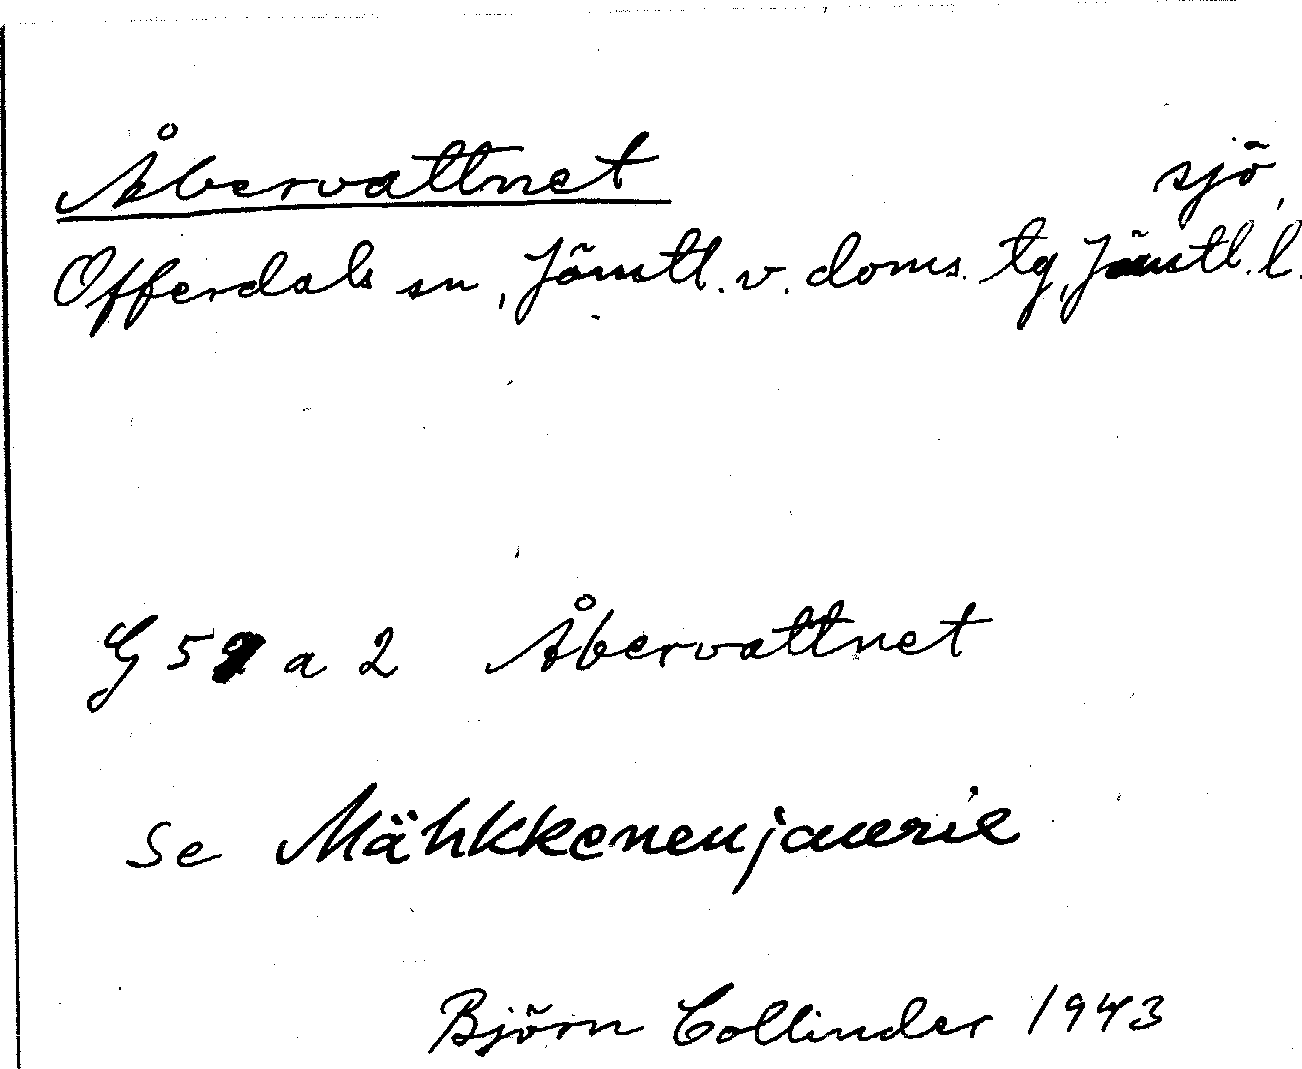 Åbervattnet sjö,
Offerdals sn, Jämtl. v. doms. tg, Jämtl. l.
G 59 a 2 Åbervattnet
Se Mähkkenenjaurie
Björn Collinder 1943